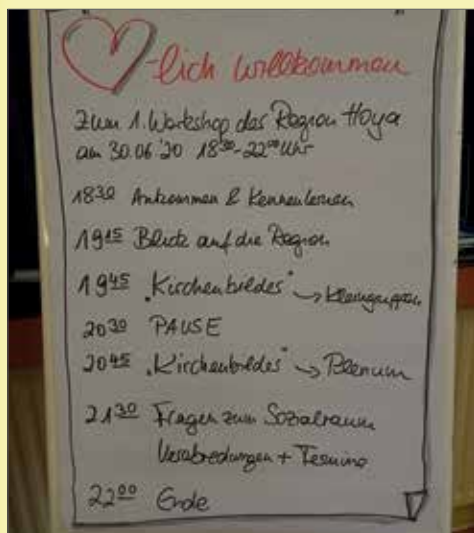 -lich willkommen
zum 1. Workshop der Region Hoya
am 30.06.'20 18³⁰-22⁰⁰ Uhr
18³⁰ Ankommen & Kennenlernen
19¹⁵ Blick auf die Region
19⁴⁵ „Kirchenbilder" → Kleingruppen
20³⁰ PAUSE
20⁴⁵ „Kirchenbilder" → Plenum
21³⁰ Fragen zum Sozialraum
Verabredungen + Termine
22⁰⁰ Ende